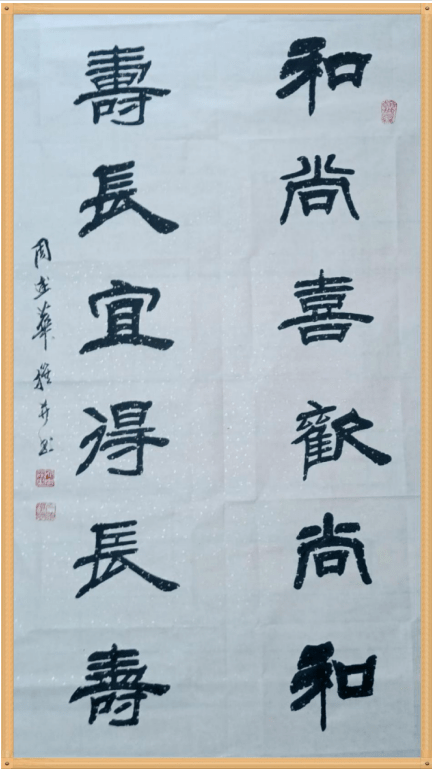 和尚喜歡尚和
壽長宜得長壽
周 華 书